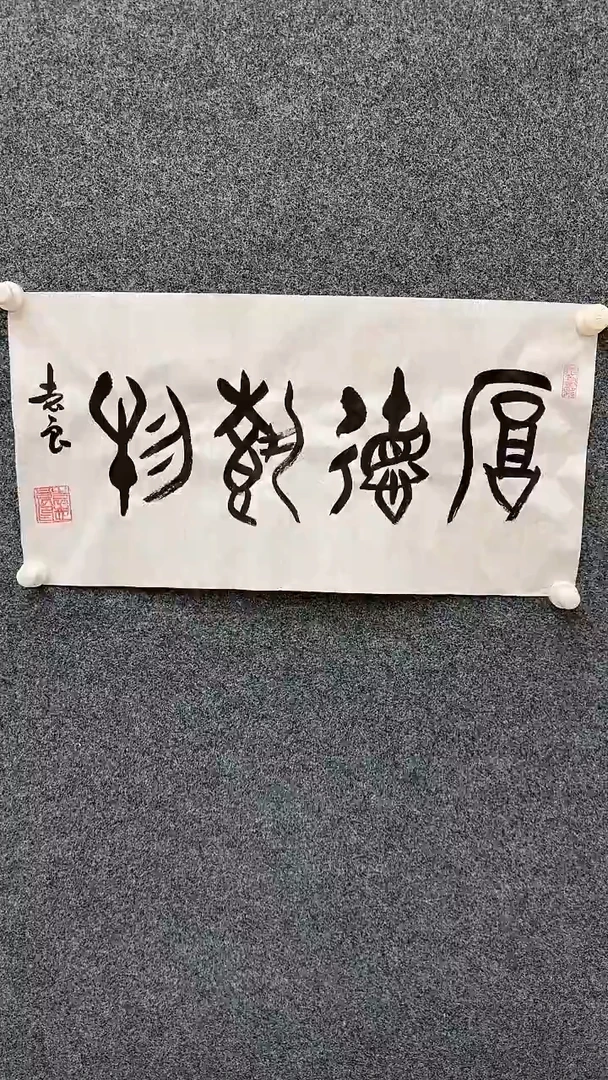 厚德載物
袁良